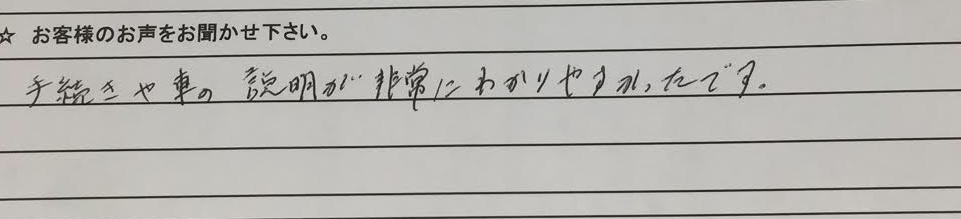 ☆ お客様のお声をお聞かせ下さい。
手続きや車の説明が非常にわかりやすかったです。